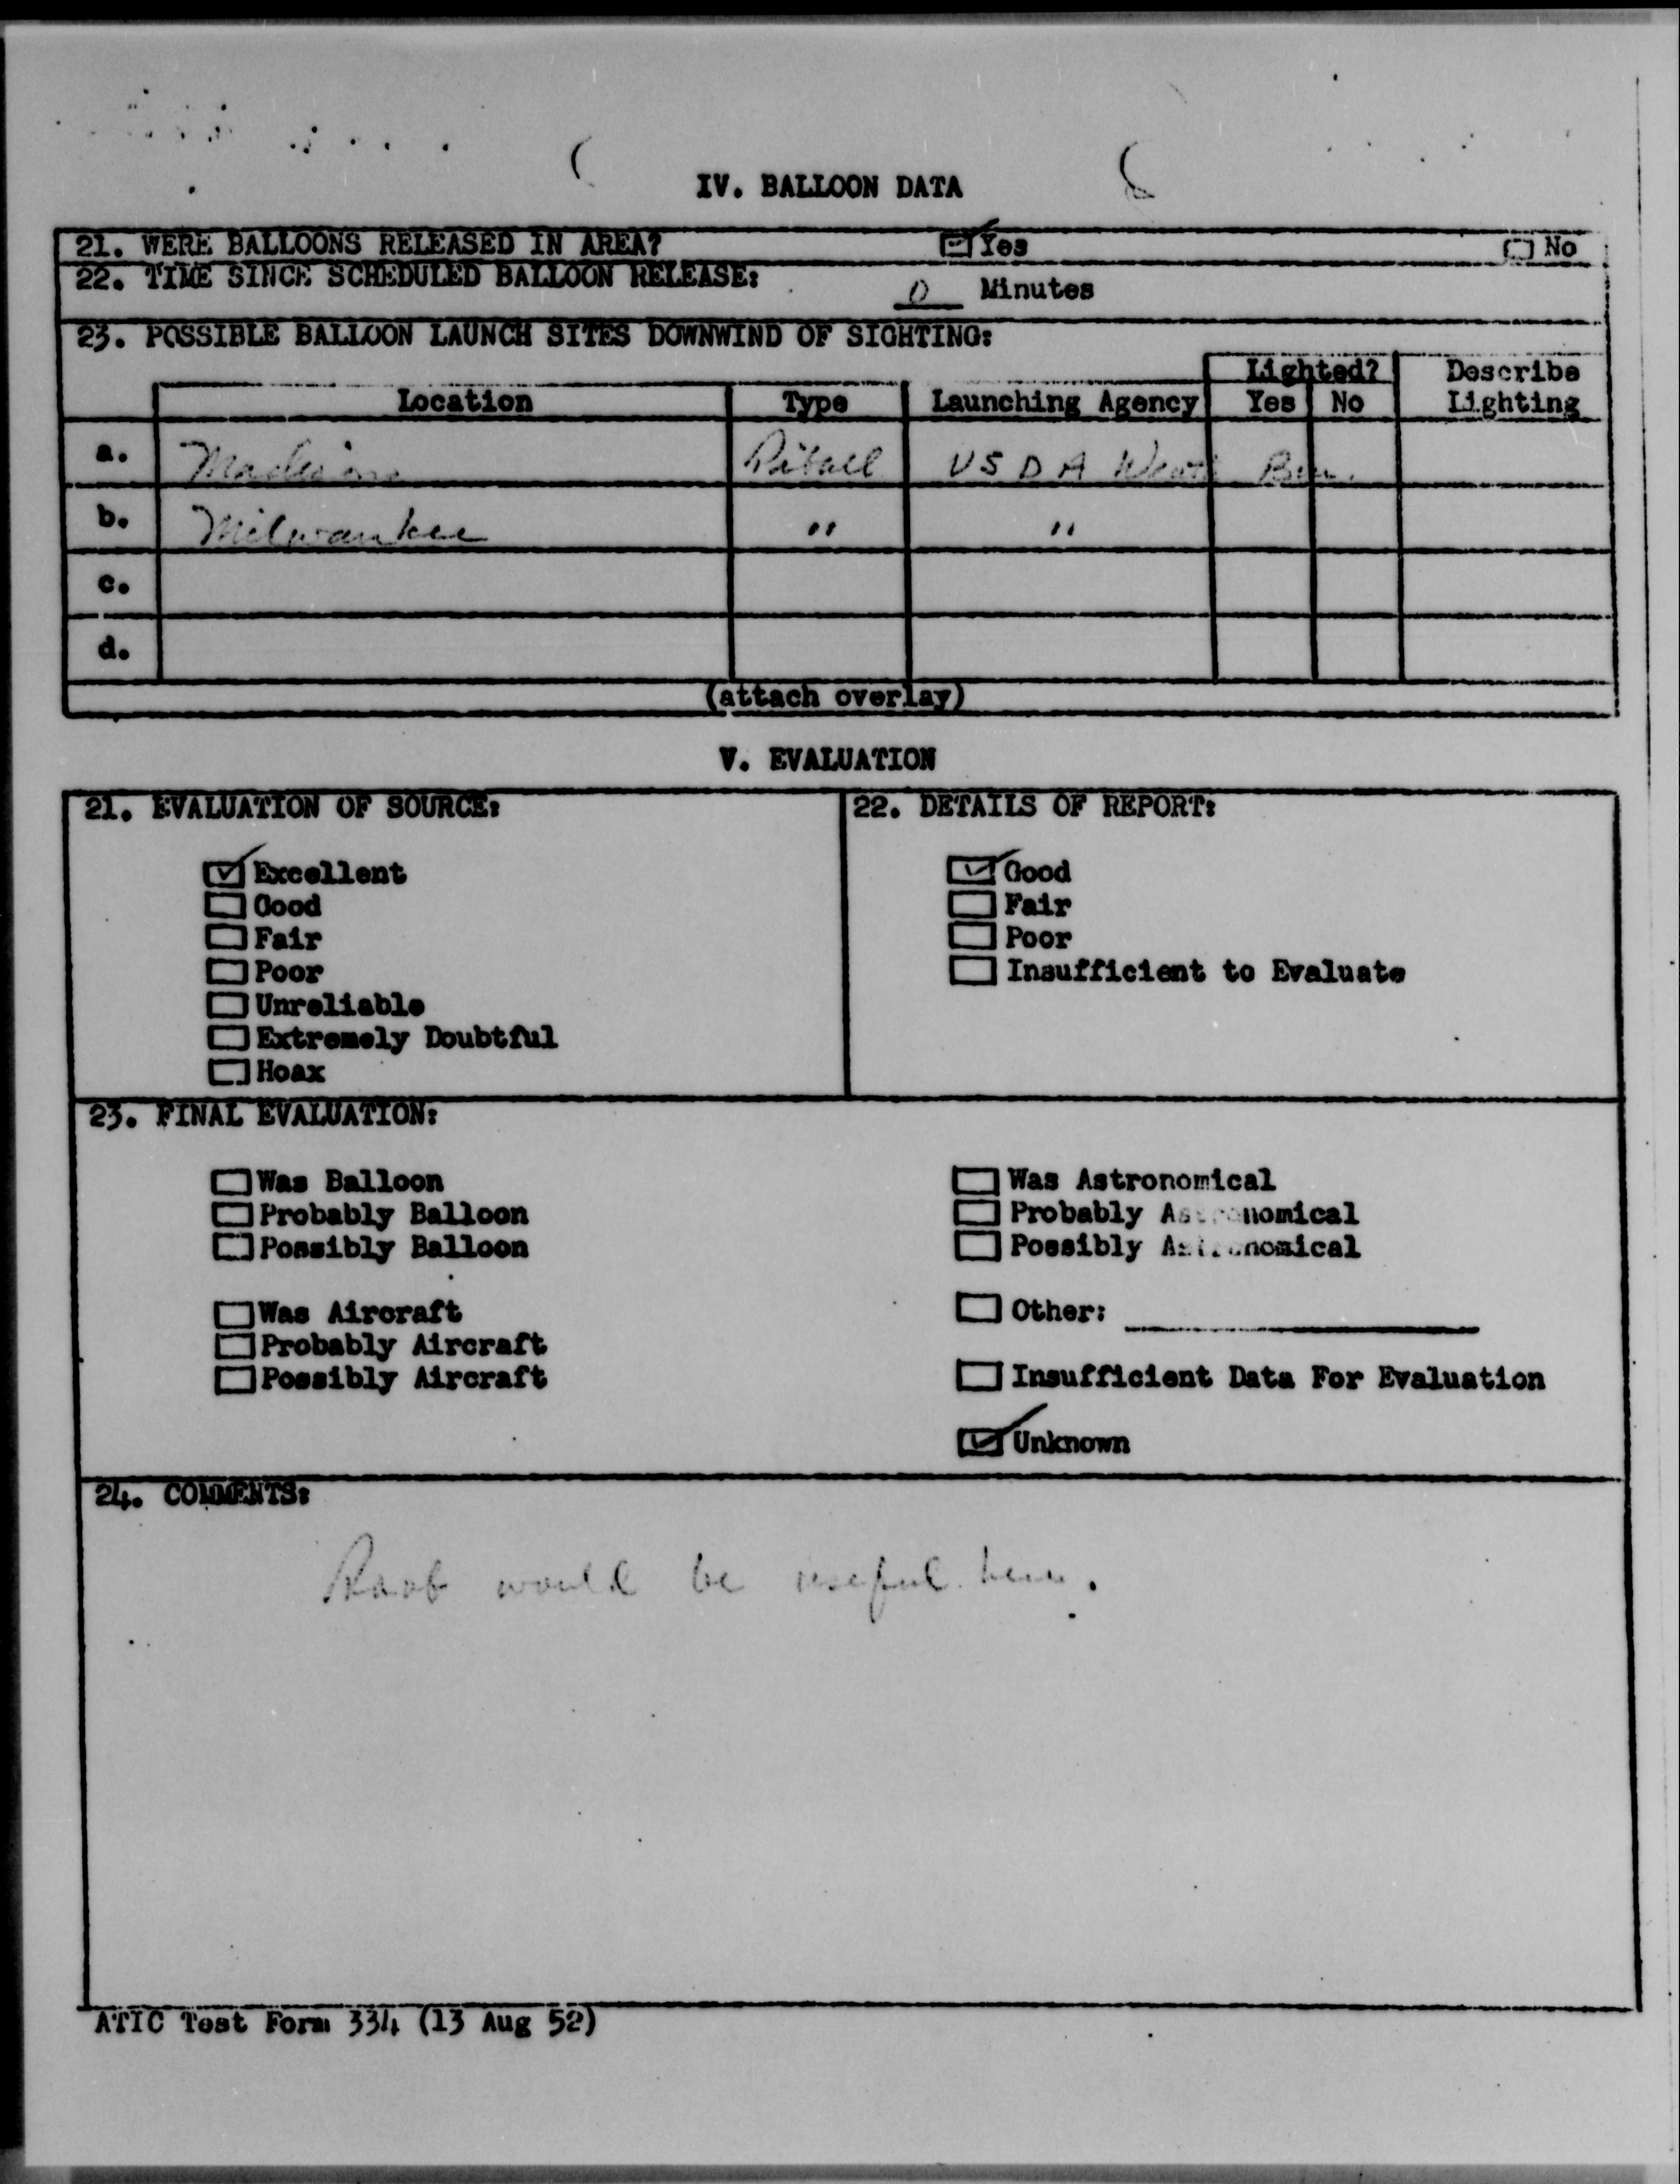 IV. BALLOON DATA
21. WERE BALLOONS RELEASED IN AREA? Yes No
22. TIME SINCE SCHEDULED BALLOON RELEASE: 0 Minutes
23. POSSIBLE BALLOON LAUNCH SITES DOWNWIND OF SIGHTING:
Lighted? Describe
Location Type Launching Agency Yes No Lighting
a. Madison Pibal USDA Weath Bur.
b. Milwaukee " "
c.
d.
(attach overlay)
V. EVALUATION
21. EVALUATION OF SOURCE: 22. DETAILS OF REPORT:
Excellent Good
Good Fair
Fair Poor
Poor Insufficient to Evaluate
Unreliable
Extremely Doubtful
Hoax
23. FINAL EVALUATION:
Was Balloon Was Astronomical
Probably Balloon Probably Astronomical
Possibly Balloon Possibly Astronomical
Was Aircraft Other:
Probably Aircraft
Possibly Aircraft Insufficient Data For Evaluation
Unknown
24. COMMENTS:
would be useful here.
ATIC Test Form 334 (13 Aug 52)